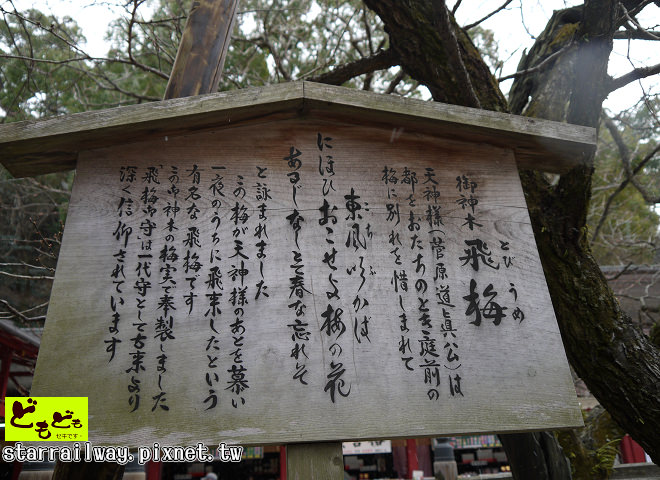 御神木 飛梅
とび うめ
天神様(菅原道眞公)は
都をおたちのとき庭前の
梅に別れを惜しまれて
東風吹かば
こち
にほひおこせよ梅の花
あるじなしとて春な忘れそ
と詠まれました
この梅が天神様のあとを慕い
一夜のうちに飛来したという
有名な飛梅です
この御神木の梅実で奉製しました
「飛梅御守」は一代守として古来より
深く信仰されています
どもども
セキです
starrailway.pixnet.tw